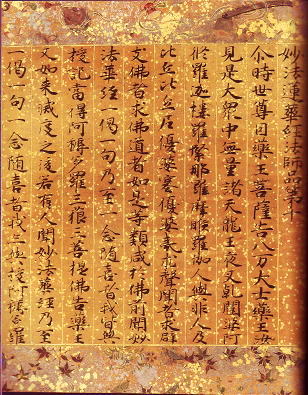 妙法蓮華經法師品第十
尒時世尊因藥王菩薩告八万大士藥王汝
見是大衆中無量諸天龍王夜叉乹闥婆阿
修羅迦樓羅緊那羅摩睺羅伽人與非人及
比丘比丘尼優婆塞優婆夷求聲聞者求辟
支佛者求佛道者如是等類咸於佛前聞妙
法華經一偈一句乃至一念随喜者我皆與
授記當得阿耨多羅三藐三菩提佛告藥王
又如来滅度之後若有人聞妙法華經乃至
一偈一句一念随喜者我亦與授阿耨多羅